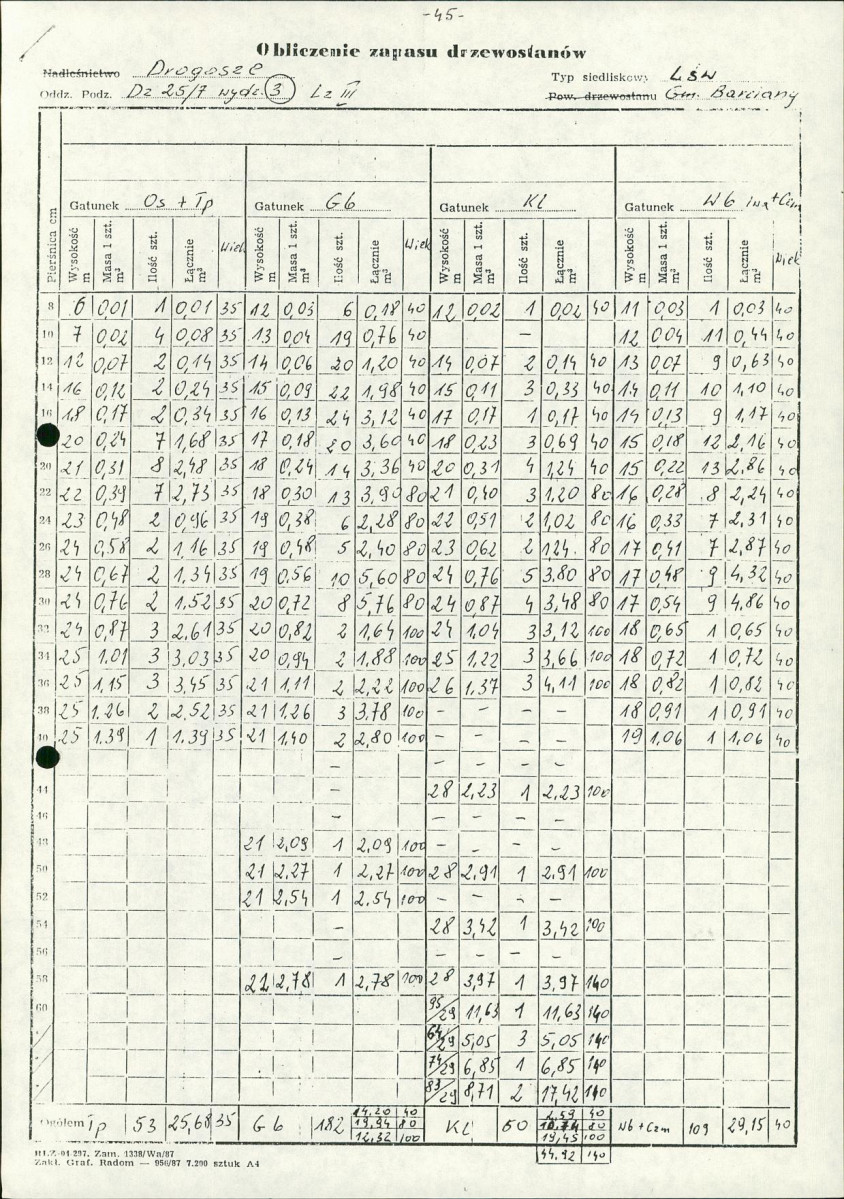 -45-
Obliczenie zapasu drzewostanów
Nadleśnictwo Drogosze Typ siedliskowy LŚW
Oddz. Podz. Dz 25/7 wydz. 3 Lz III Pow. drzewostanu Gm. Barciany
Gatunek Os + Tp Gatunek Gb Gatunek KL Gatunek Wb iwa + Czm
Pierśnica cm Wysokość m Masa 1 szt. m³ Ilość szt. Łącznie m³ Wiek Wysokość m Masa 1 szt. m³ Ilość szt. Łącznie m³ Wiek Wysokość m Masa 1 szt. m³ Ilość szt. Łącznie m³ Wysokość m Masa 1 szt. m³ Ilość szt. Łącznie m³ Wiek
8 6 0,01 1 0,01 35 12 0,03 6 0,18 40 12 0,02 1 0,02 40 11 0,03 1 0,03 40
10 7 0,02 4 0,08 35 13 0,04 19 0,76 40 – 12 0,04 11 0,44 40
12 12 0,07 2 0,14 35 14 0,06 20 1,20 40 14 0,07 2 0,14 40 13 0,07 9 0,63 40
14 16 0,12 2 0,24 35 15 0,09 22 1,98 40 15 0,11 3 0,33 40 14 0,11 10 1,10 40
16 18 0,17 2 0,34 35 16 0,13 24 3,12 40 17 0,17 1 0,17 40 14 0,13 9 1,17 40
20 0,24 7 1,68 35 17 0,18 20 3,60 40 18 0,23 3 0,69 40 15 0,18 12 2,16 40
20 21 0,31 8 2,48 35 18 0,24 14 3,36 40 20 0,31 4 1,24 40 15 0,22 13 2,86 40
22 22 0,39 7 2,73 35 18 0,30 13 3,90 80 21 0,40 3 1,20 80 16 0,28 8 2,24 40
24 23 0,48 2 0,96 35 19 0,38 6 2,28 80 22 0,51 2 1,02 80 16 0,33 7 2,31 40
26 24 0,58 2 1,16 35 19 0,48 5 2,40 80 23 0,62 2 1,24 80 17 0,41 7 2,87 40
28 24 0,67 2 1,34 35 19 0,56 10 5,60 80 24 0,76 5 3,80 80 17 0,48 9 4,32 40
30 24 0,76 2 1,52 35 20 0,72 8 5,76 80 24 0,87 4 3,48 80 17 0,54 9 4,86 40
32 24 0,87 3 2,61 35 20 0,82 2 1,64 100 24 1,04 3 3,12 100 18 0,65 1 0,65 40
34 25 1,01 3 3,03 35 20 0,94 2 1,88 100 25 1,22 3 3,66 100 18 0,72 1 0,72 40
36 25 1,15 3 3,45 35 21 1,11 2 2,22 100 26 1,37 3 4,11 100 18 0,82 1 0,82 40
38 25 1,26 2 2,52 35 21 1,26 3 3,78 100 – – – – 18 0,91 1 0,91 40
40 25 1,39 1 1,39 35 21 1,40 2 2,80 100 – – – – 19 1,06 1 1,06 40
– – – – –
44 – 28 2,23 1 2,23 100
46 – – – – –
48 21 2,09 1 2,09 100 – – – –
50 21 2,27 1 2,27 100 28 2,91 1 2,91 100
52 21 2,54 1 2,54 100 – – – –
54 – 28 3,42 1 3,42 100
56 – – – – –
58 22 2,78 1 2,78 100 28 3,97 1 3,97 140
60 93/29 11,63 1 11,63 140
64/29 5,05 3 5,05 140
74/29 6,85 1 6,85 140
83/29 8,71 2 17,42 140
Ogółem Tp 53 25,68 35 Gb 182 14.20 40 KL 50 2,59 40 Wb + Czm 109 29,15 40
19,94 80 10,74 80
12,32 100 19,45 100
44.92 140
HLZ-04-297. Zam. 1338/Wa/87
Zakł. Graf. Radom — 956/87 7.200 sztuk A4